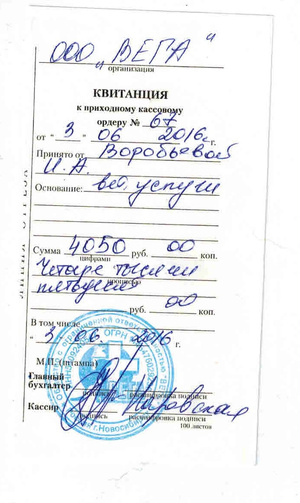 ООО „ВЕГА"
организация
КВИТАНЦИЯ
к приходному кассовому
ордеру № 67
от "3" 06 2016 г.
Принято от Воробьевой
И. А.
Основание: веб услуги
Сумма 4050 руб. 00 коп.
цифрами
Четыре тысячи
прописью
руб. 00 коп.
В том числе
"3" 06. 2016
М.П. (штампа)
Главный
бухгалтер
подпись расшифровка подписи
Кассир
подпись расшифровка подписи
100 листов
ЛИНИЯ ОТРЕЗА